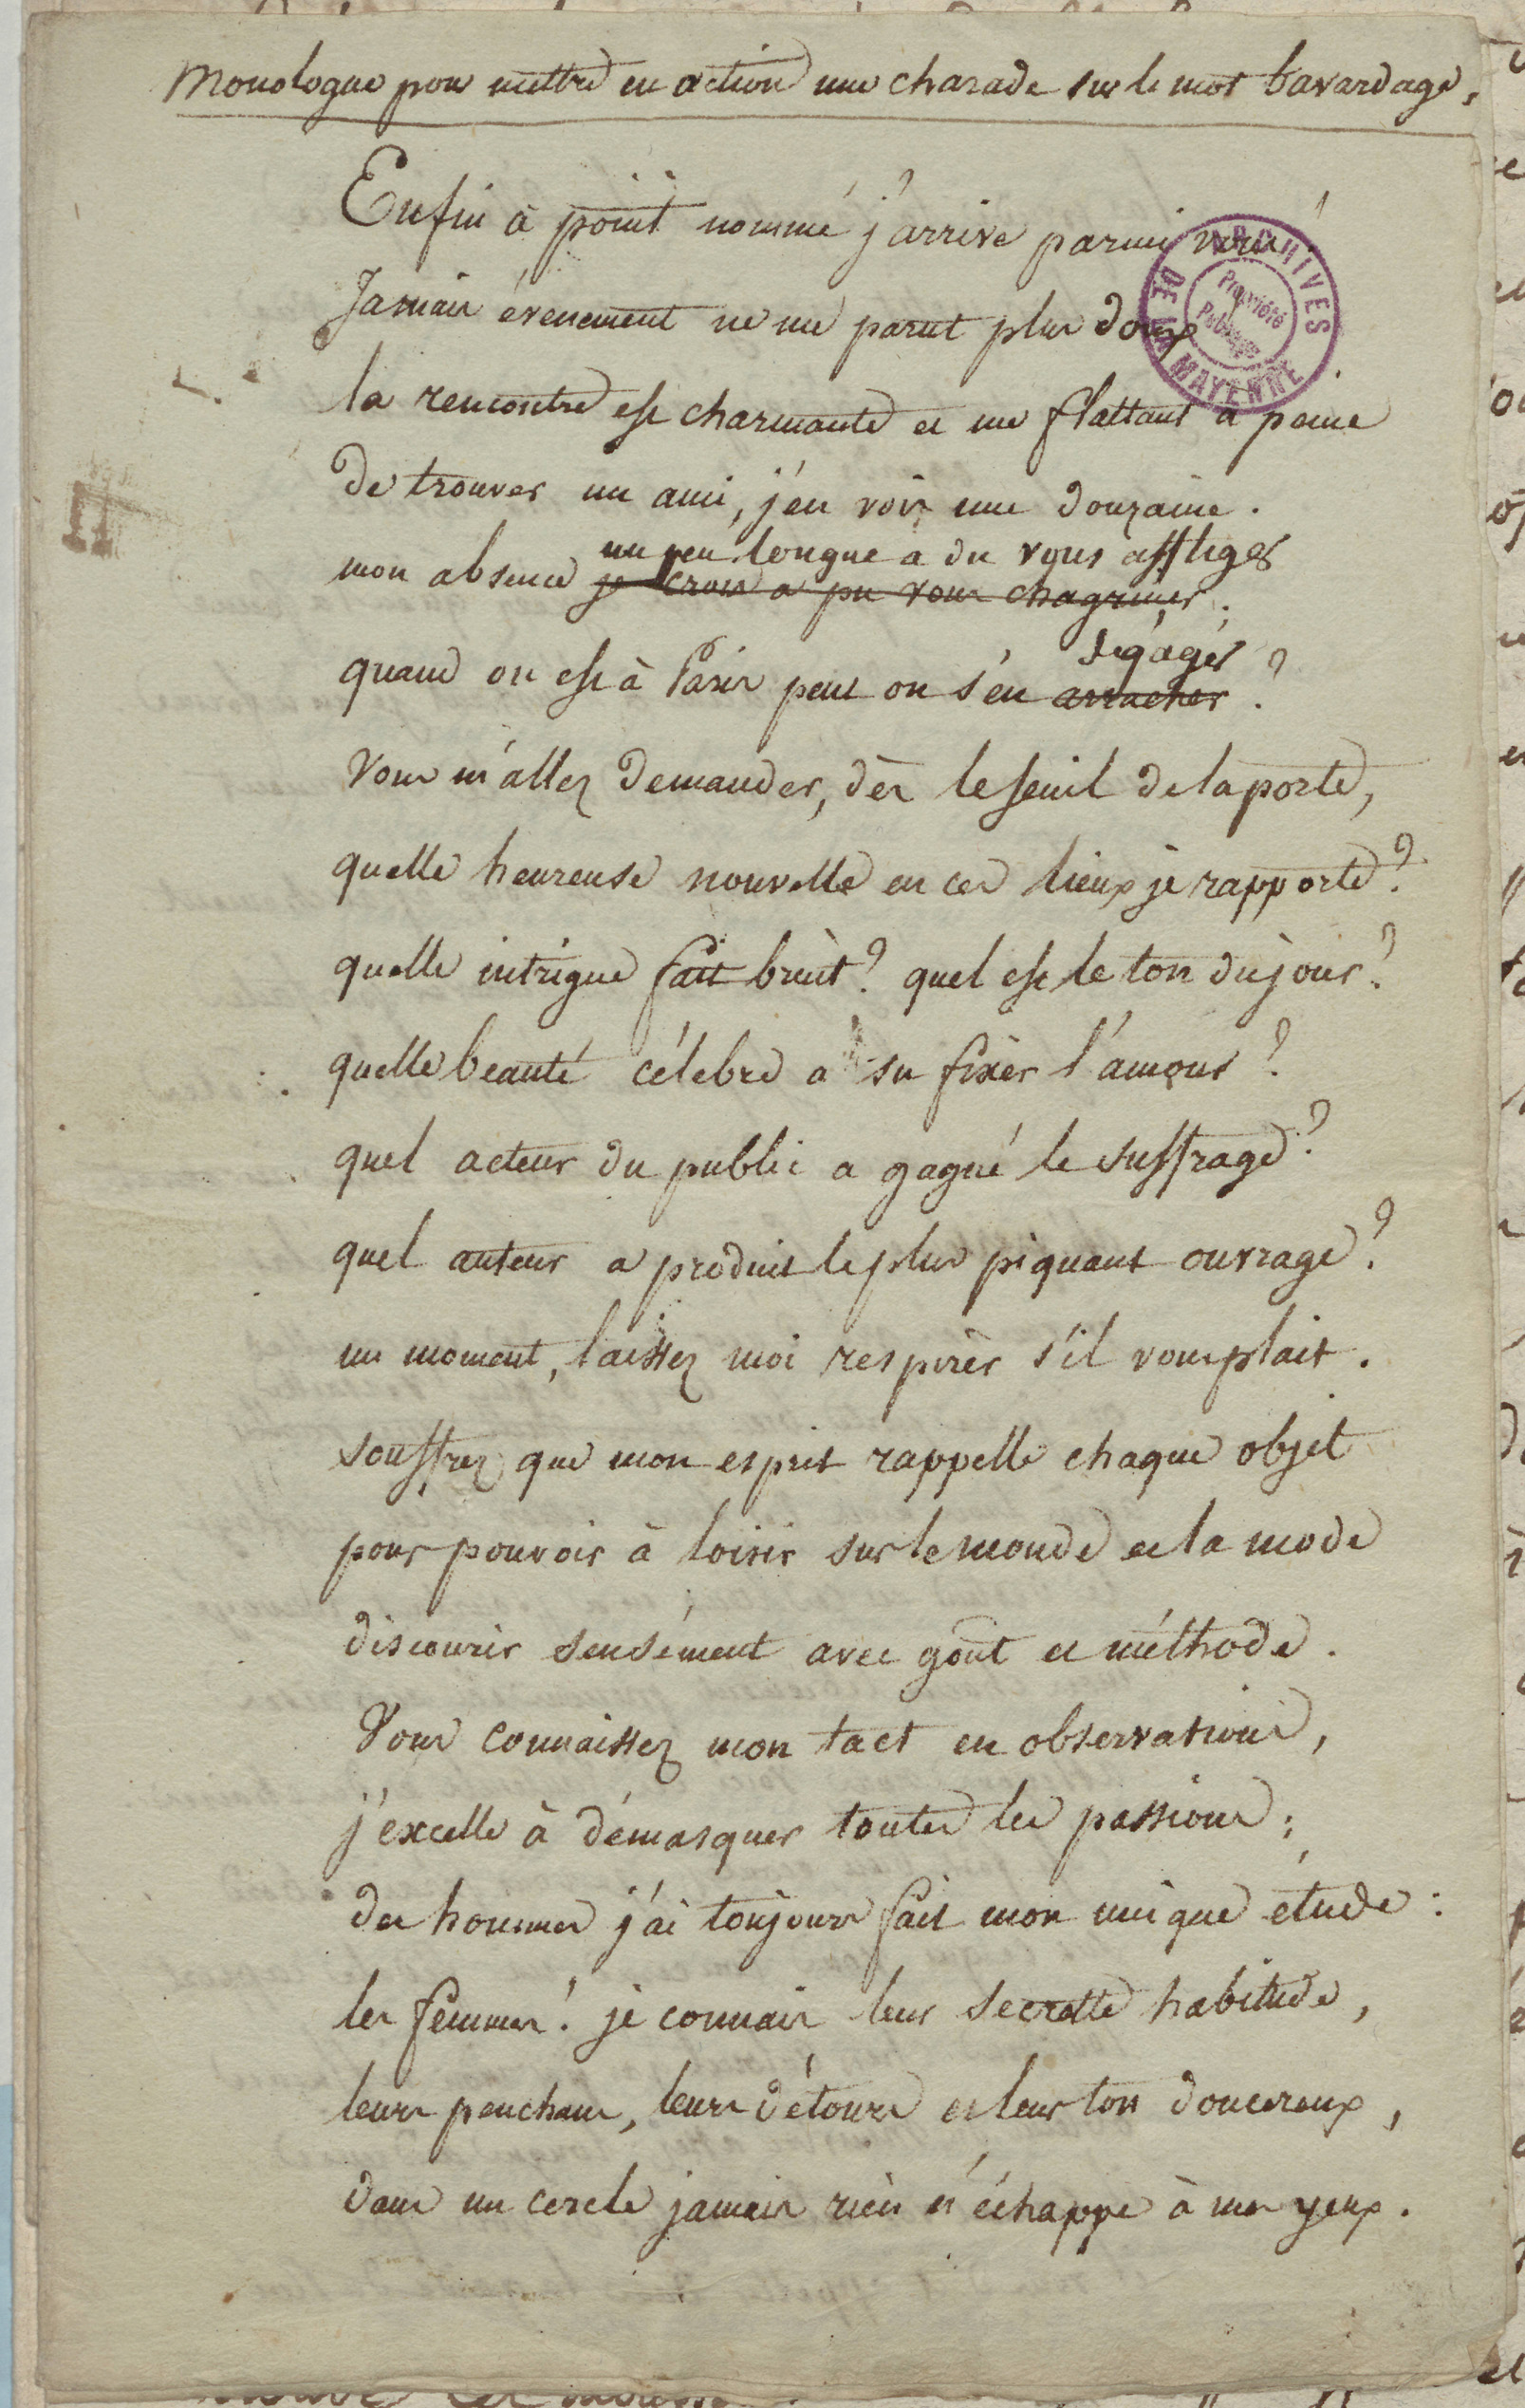 Monologue pour mettre en action une charade sur le mot bavardage.
Enfin à point nommé j'arrive parmi vous!
Jamais évenement ne me parut plus doux
la rencontre est charmante et me flattant à peine
De trouver un ami, j'en vois une douzaine.
un peu longue a du vous affliger
mon absence je crois a pu vous chagriner.
dégager
quand on est à Paris peut on s'en arracher?
Vous m'allez demander, dès le seuil de la porte,
quelle heureuse nouvelle en ces lieux je rapporte?
quelle intrigue fait bruit? quel est le ton du jour?
quelle beauté célebre a su fixer l'amour?
quel acteur du public a gagné le suffrage?
quel auteur a produit le plus piquant ouvrage?
un moment, laissez moi respirer s'il vous plait.
souffrez que mon esprit rappelle chaque objet
pour pouvoir à loisir sur le monde et la mode
discourir sensément avec goût et méthode.
Vous connaissez mon tact en observations,
j'excelle à démasquer toutes les passions;
des hommes j'ai toujours fait mon unique étude:
les femmes! je connais leur secrette habitude,
leurs penchans, leurs détours et leur ton doucereux,
dans un cercle jamais rien n'échappe à mes yeux.
ARCHIVES DE LA MAYENNE
Propriété Publique